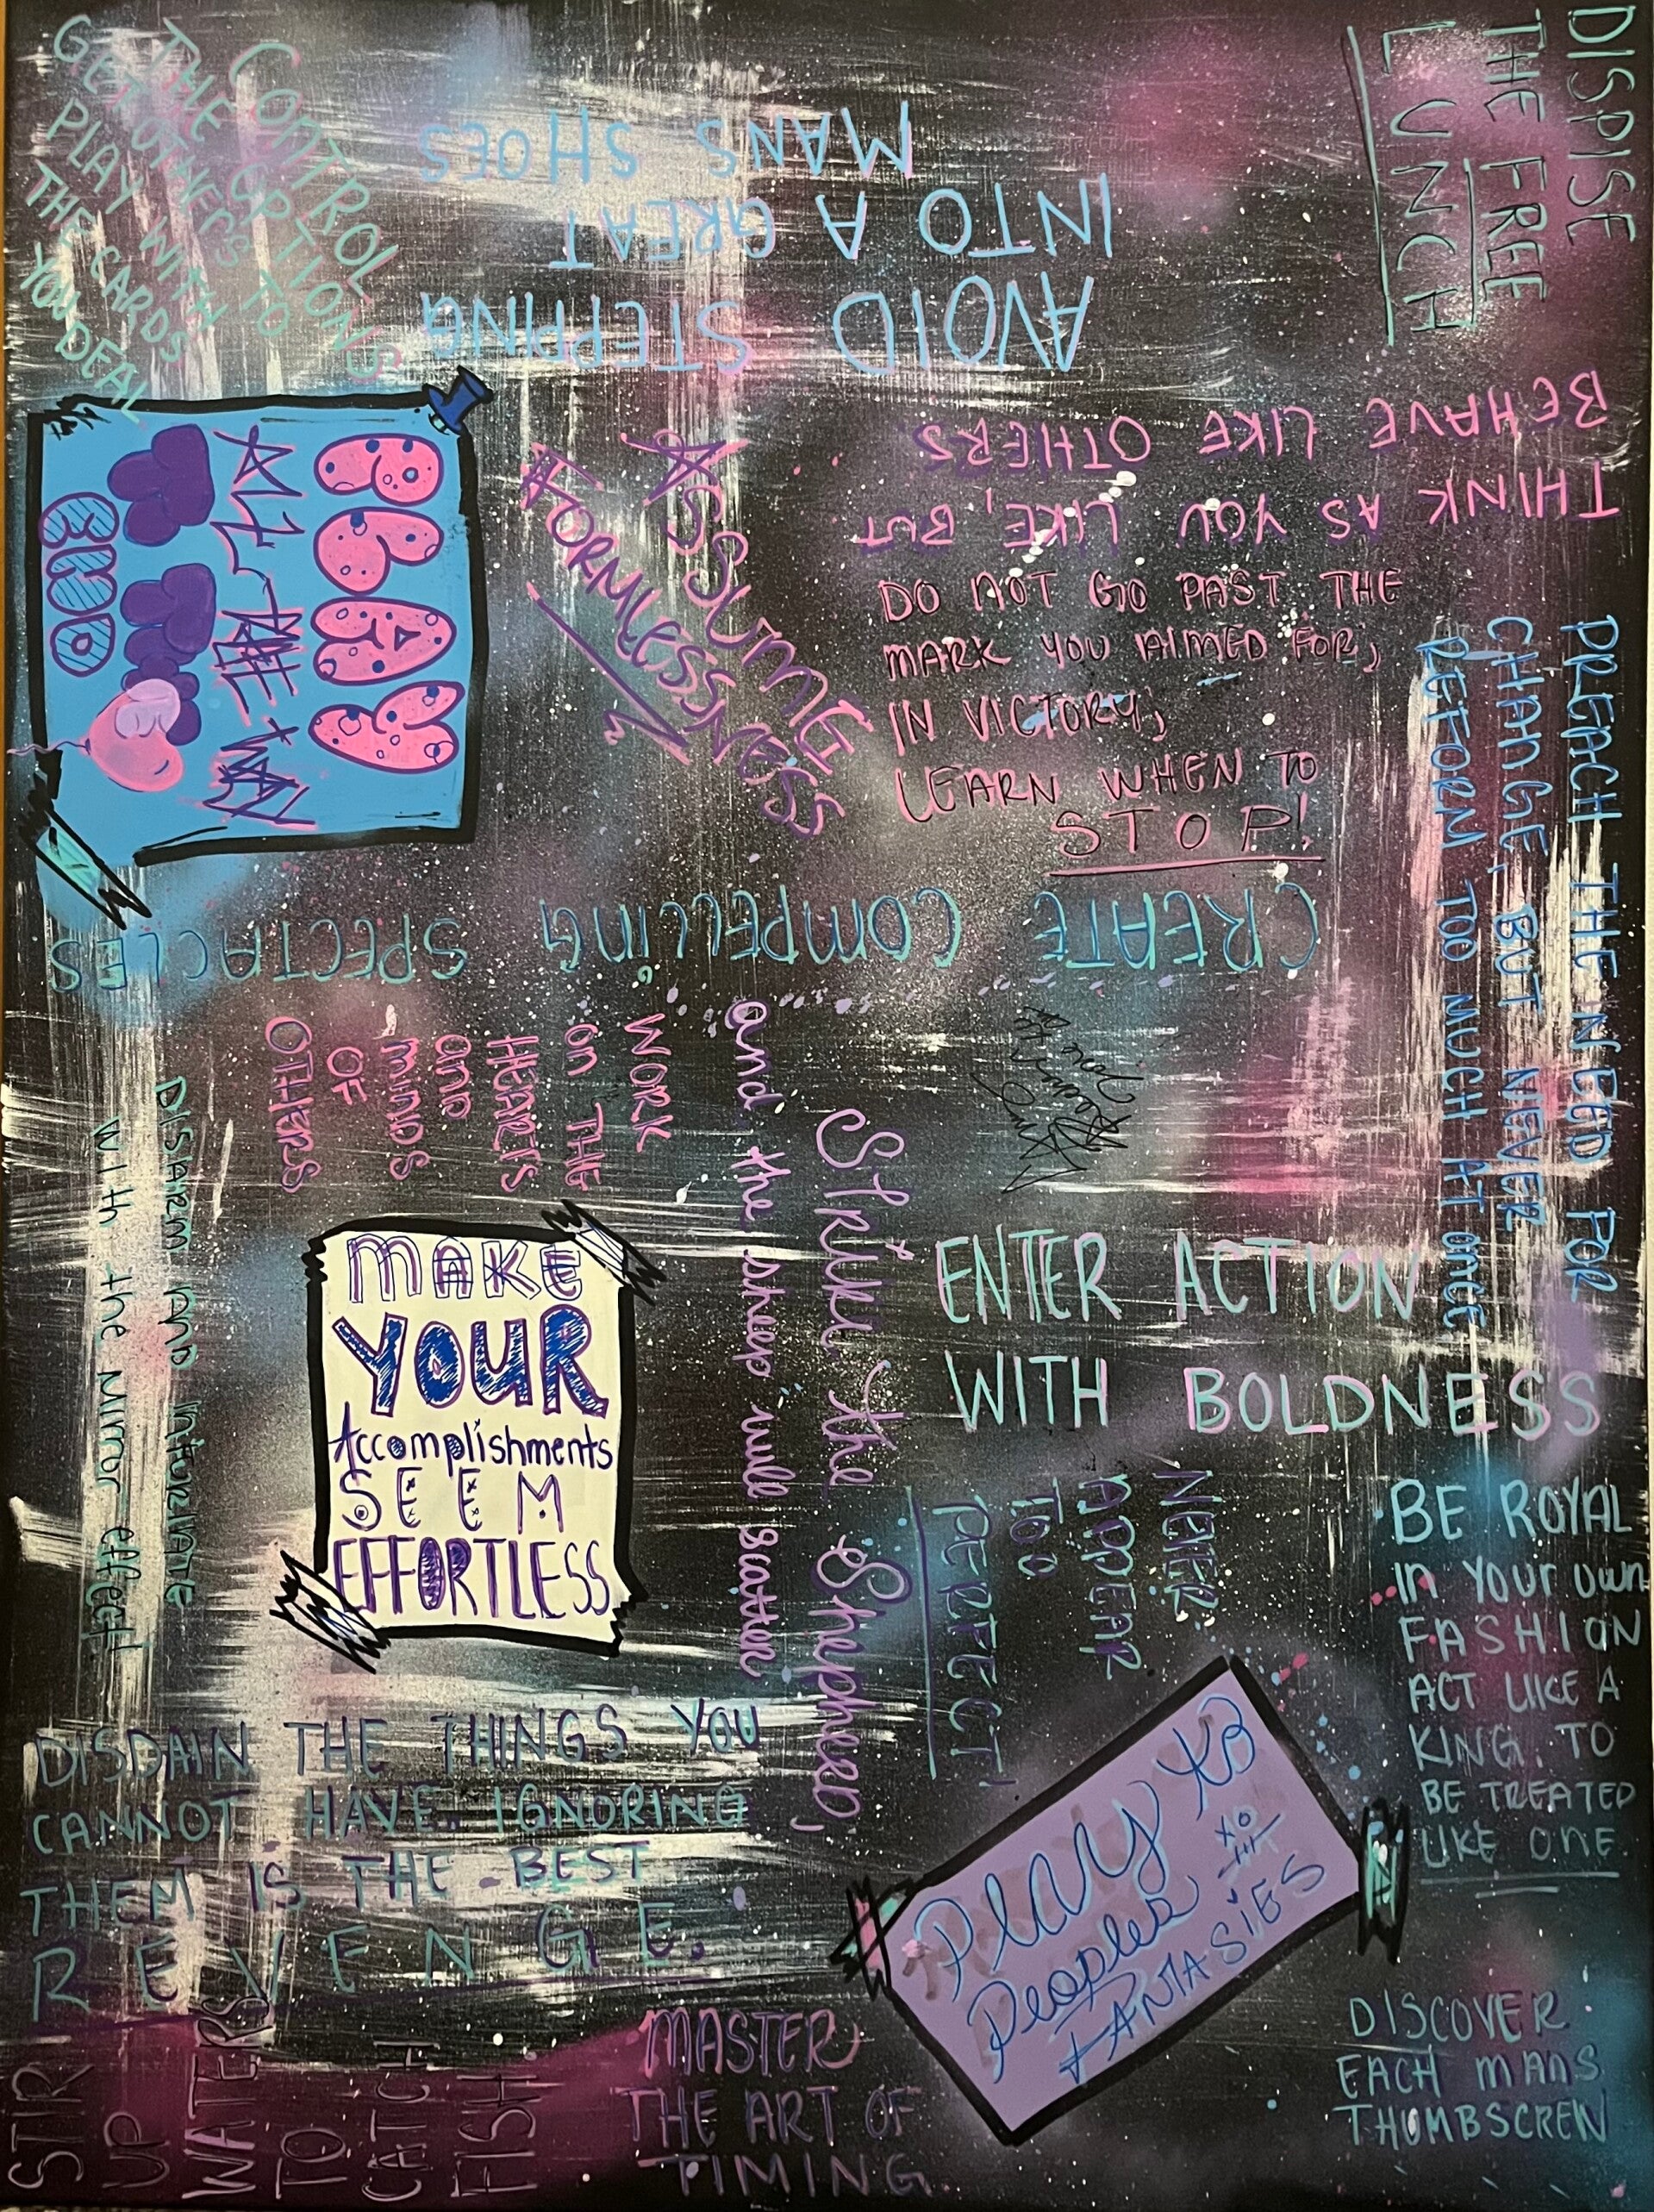 CONTROL
THE OPTIONS
GET OTHERS TO
PLAY WITH
THE CARDS
YOU DEAL
AVOID STEPPING
INTO A GREAT
MANS SHOES
DISPISE
THE FREE
LUNCH
THINK AS YOU LIKE, BUT
BEHAVE LIKE OTHERS.
PLAN
ALL THE WAY
END
ASSUME
FORMLESSNESS
DO NOT GO PAST THE
MARK YOU AIMED FOR;
IN VICTORY;
LEARN WHEN TO
STOP!
PREACH THE NEED FOR
CHANGE, BUT NEVER
REFORM TOO MUCH AT ONCE
CREATE COMPELLING SPECTACLES
WORK
on THE
HEARTS
and
minds
OF
OTHERS
Strike the Shepherd,
and the sheep will scatter
Disarm and infuriate
with the mirror effect
ENTER ACTION
WITH BOLDNESS
MAKE
YOUR
Accomplishments
SEEM
EFFORTLESS
NEVER
APPEAR
TOO
PERFECT!
BE ROYAL
in YOUR own
FASHION
ACT LIKE A
KING. TO
BE TREATED
LIKE ONE.
DISDAIN THE THINGS YOU
CANNOT HAVE. IGNORING
THEM IS THE BEST
REVENGE.
Play to
Peoples
FANTASIES
STIR
UP
WATERS
TO
CATCH
FISH.
MASTER
THE ART OF
TIMING.
DISCOVER
EACH MANS
THUMBSCREW